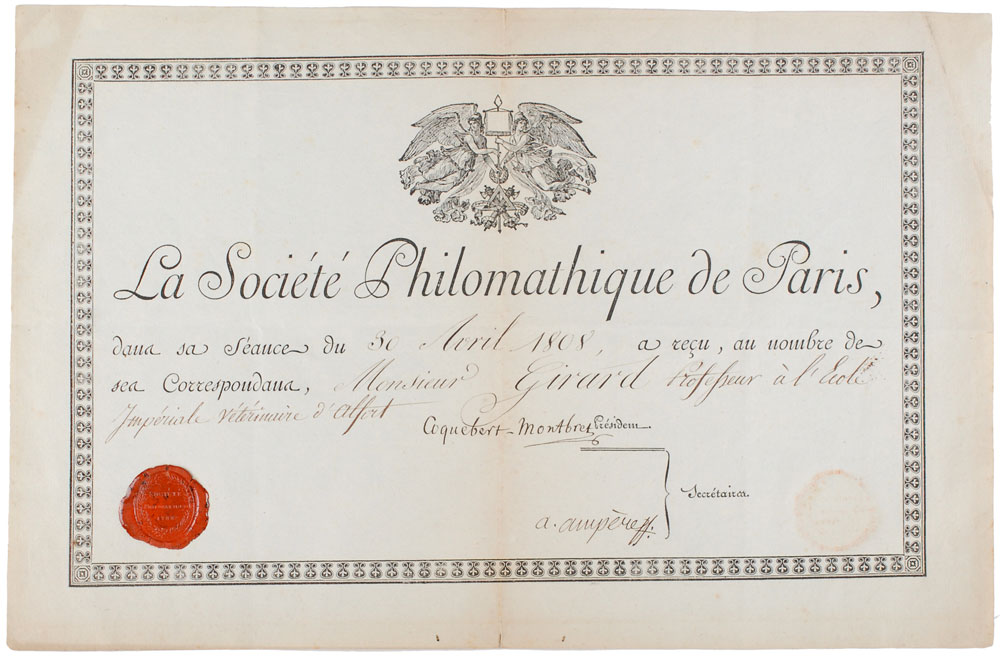 La Société Philomathique de Paris,
dans sa Séance du 30 Avril 1808, a reçu, au nombre de
ses Correspondans, Monsieur Girard Professeur à l'Ecole
Impériale vétérinaire d'alfort
Coquebert-Montbret Président.
Secrétaires.
a. ampère
SOCIETÉ